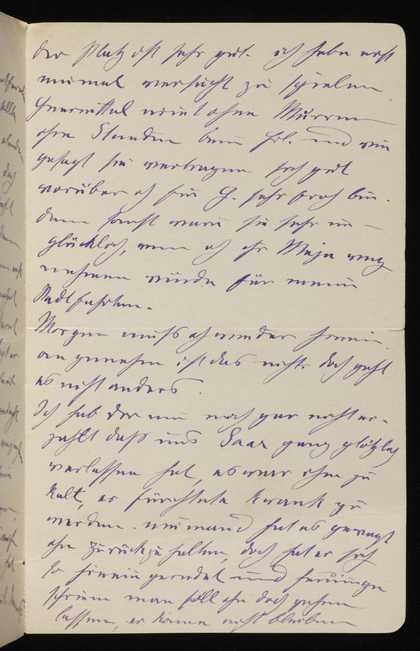 der Platz ist sehr gut. ich habe erst
einmal versucht zu spielen.
ohne Murren
ihre Stunden beim Frl. und wie
gesagt sie vertragen sich gut
worüber ich für G. sehr froh bin.
denn sonst wäre sie sehr un-
glücklich, wenn ich ihr Maja weg
nehmen würde für meine
Radtfahrten.
Morgen muss ich wieder hinein.
angenehm ist das nicht. doch geht
es nicht anders.
Ich hab dir nun noch gar nicht er-
zählt daß uns Saar ganz plötzlich
verlassen hat, es war ihm zu
kalt, er fürchtete krank zu
werden. niemand hat es gewagt
ihn zurückzuhalten, doch hat er sich
so hinein geredet und
man soll ihn doch gehen
lassen, er könne nicht bleiben